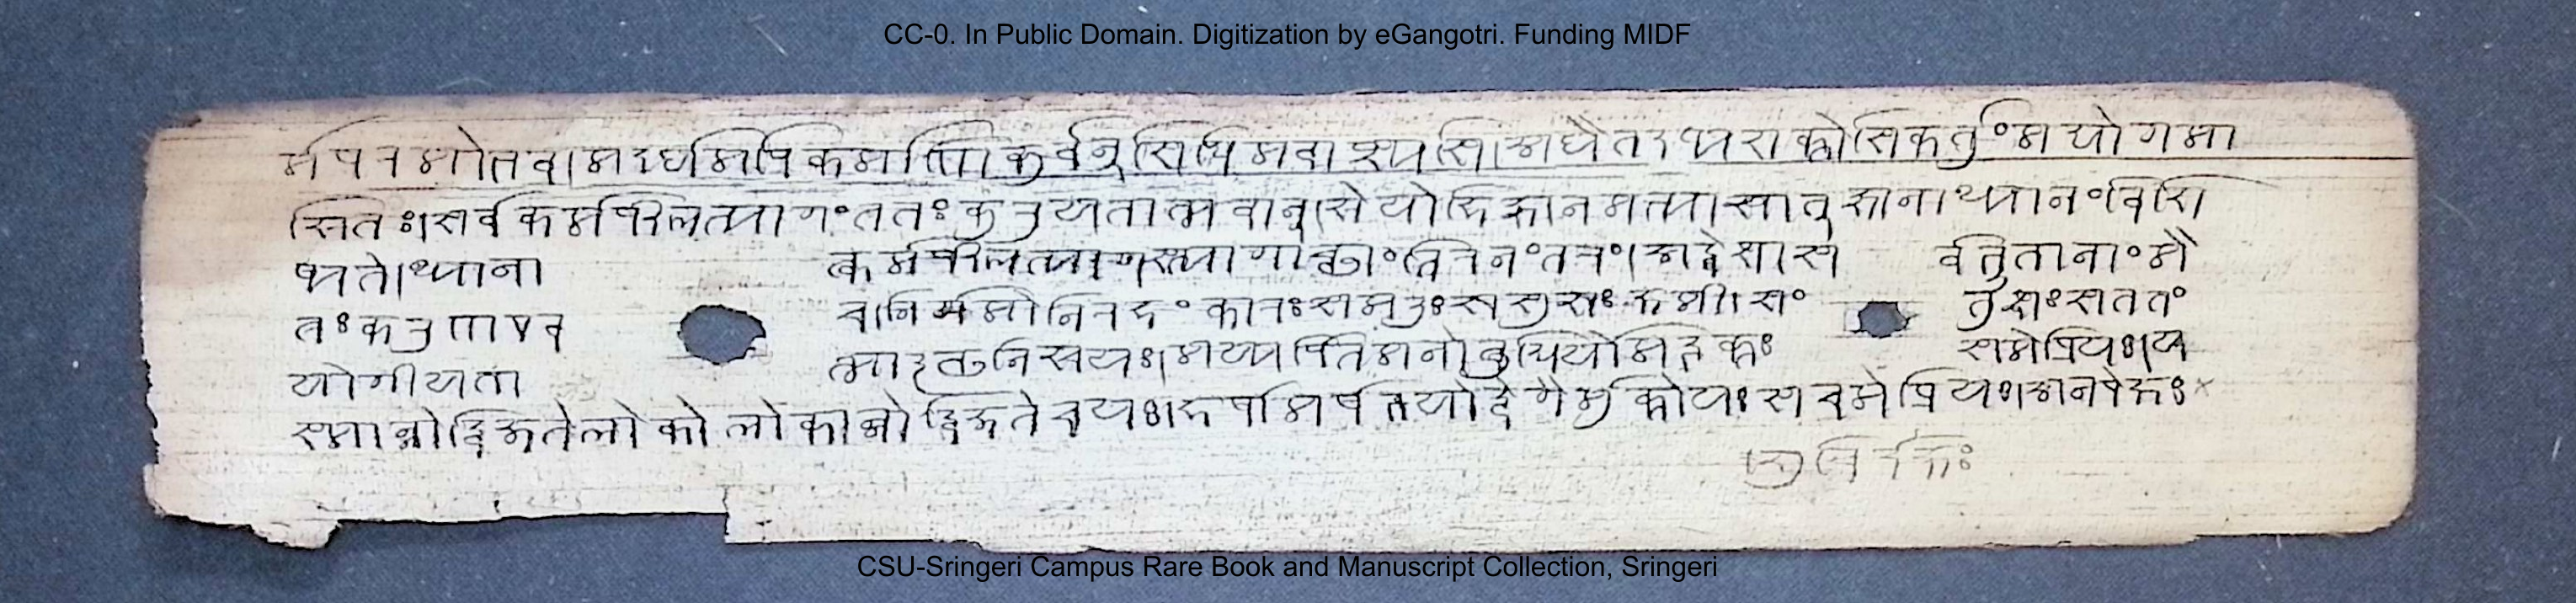 CC-0. In Public Domain. Digitization by eGangotri. Funding MIDF
र्मपरमो तव। मदर्थमपि कर्माणि कुर्वन् सिद्धिमवाप्स्यसि। अथैतदप्यशक्तोसि कर्तुं मद्योगमा
श्रितः। सर्वकर्मफलत्यागं ततः कुरु यतात्मवान्। श्रेयो हि ज्ञानमभ्यासात् ज्ञानाध्यानं विशि
ष्यते। ध्याना कर्मफलत्यागस्त्यागाच्छांतिरनंतरं। अद्वेषा स र्वभूतानां मै
त्रः करुण एव च। निर्ममो निरहंकारः समदुःखसुखः क्षमी। सं तुष्टः सततं
योगी यता त्मा दृढनिश्चयः। मय्यर्पितमनोबुद्धिर्यो मद्भक्तः स मे प्रियः। य
स्मान्नोद्विजते लोको लोकान्नोद्विजते च यः। हर्षामर्षभयोद्वेगैर्मुक्तो यः स च मे प्रियः। अनपेक्षः
CSU-Sringeri Campus Rare Book and Manuscript Collection, Sringeri